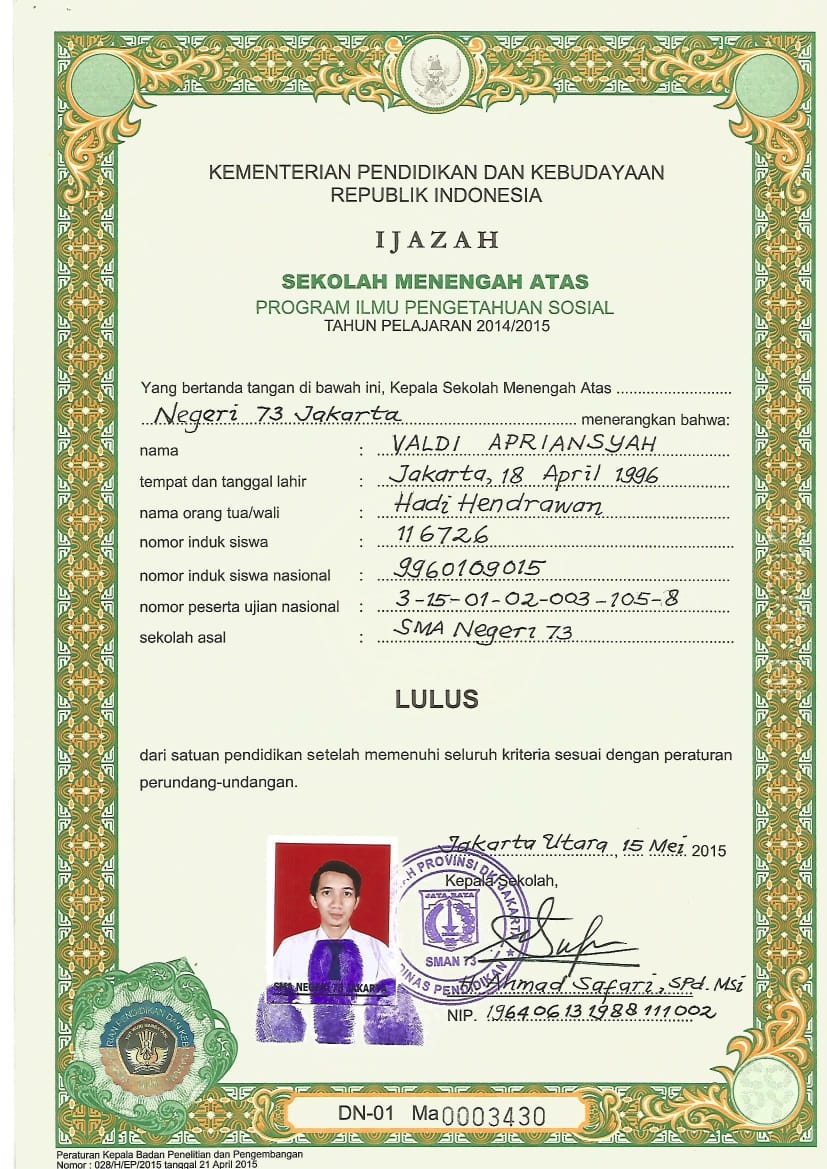 KEMENTERIAN PENDIDIKAN DAN KEBUDAYAAN
REPUBLIK INDONESIA
IJAZAH
SEKOLAH MENENGAH ATAS
PROGRAM ILMU PENGETAHUAN SOSIAL
TAHUN PELAJARAN 2014/2015
Yang bertanda tangan di bawah ini, Kepala Sekolah Menengah Atas
Negeri 73 Jakarta menerangkan bahwa:
nama : VALDI APRIANSYAH
tempat dan tanggal lahir : Jakarta, 18 April 1996
nama orang tua/wali : Hadi Hendrawan
nomor induk siswa : 116726
nomor induk siswa nasional : 9960109015
nomor peserta ujian nasional : 3-15-01-02-003-105-8
sekolah asal : SMA Negeri 73
LULUS
dari satuan pendidikan setelah memenuhi seluruh kriteria sesuai dengan peraturan
perundang-undangan.
Jakarta Utara, 15 Mei 2015
Kepala Sekolah,
PROVINSI DKI JAKARTA
JAYA RAYA
SMAN 73
DINAS PENDIDIKAN
SMA NEGERI 73 JAKARTA
H. Ahmad Safari, SPd. MSi
NIP. 196406131988111002
PENDIDIKAN DAN KEB
DN-01 Ma 0003430
Peraturan Kepala Badan Penelitian dan Pengembangan
Nomor : 028/H/EP/2015 tanggal 21 April 2015